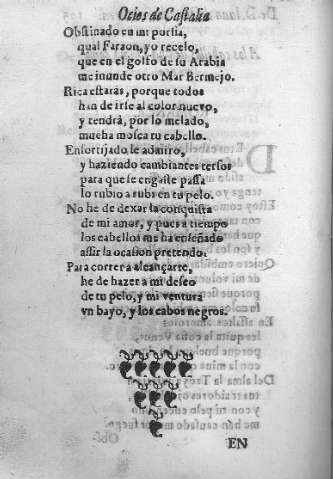 Ocios de Castalia
Obstinado en mi porfia,
qual Faraon, yo recelo,
que en el golfo de su Arabia
me inunde otro Mar Bermejo.
Rica estaras, porque todos
han de irse al color nuevo,
y tendrà, por lo melado,
mucha mosca tu cabello.
Ensortijado le admiro,
y haziendo cambiantes tersos
para que se engaste passa
lo rubio a rubi en tu pelo.
No he de dexar la conquista
de mi amor, y pues a tiempo
los cabellos me ha enseñado
assir la ocasion pretendo.
Para correr a alcançarte,
he de hazer a mi deseo
de tu pelo, y mi ventura
vn bayo, y los cabos negros.
EN